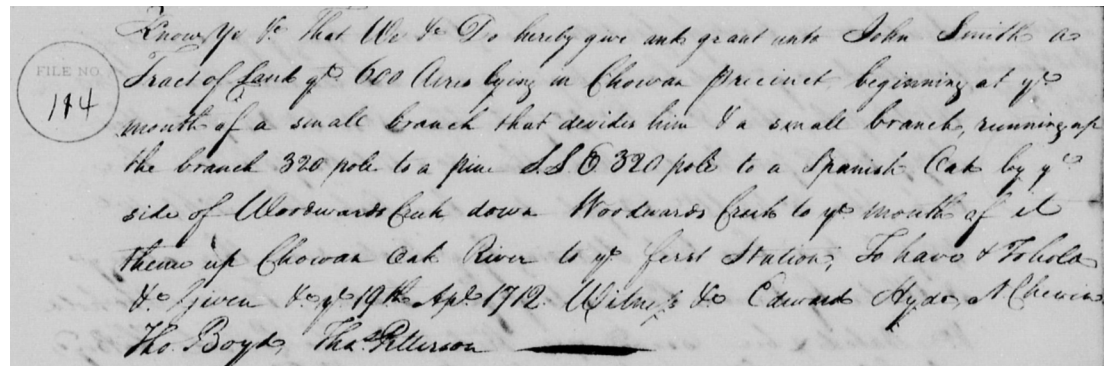 Know Ye &c That We &c Do hereby give and grant unto John Smith a
FILE NO.
114
Tract of Land ye 600 Acres lying in Chowan precinct, beginning at ye
mouth of a small branch that devides him & a small branch, running up
the branch 320 pole to a pine S.S.E 320 pole to a Spanish Oak by ye
side of Woodwards Creek down Woodwards Creek to ye mouth of it
thence up Chowan Oak River to ye ferst Station, To have & To hold
&c Given &c ye 19th Apl 1712. Witness &c Edward Hyde, N Chevin
Tho. Boyd, Thas Petterson